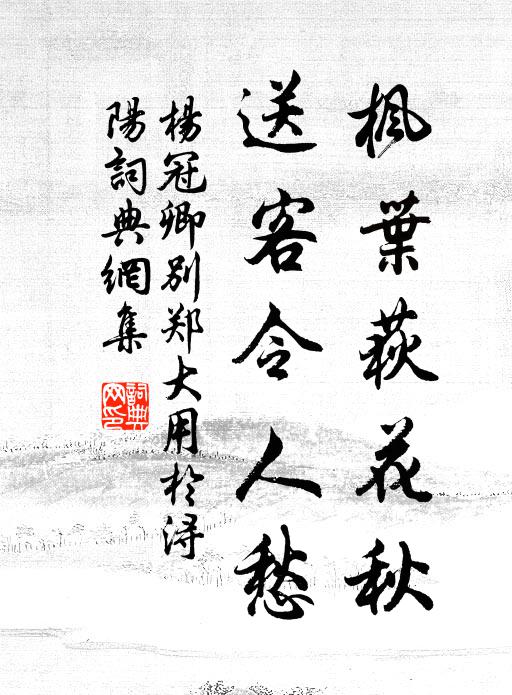 楓葉荻花秋
送客令人愁
楊冠卿别郑大用於浔
陽詞典網集
詞典
网印